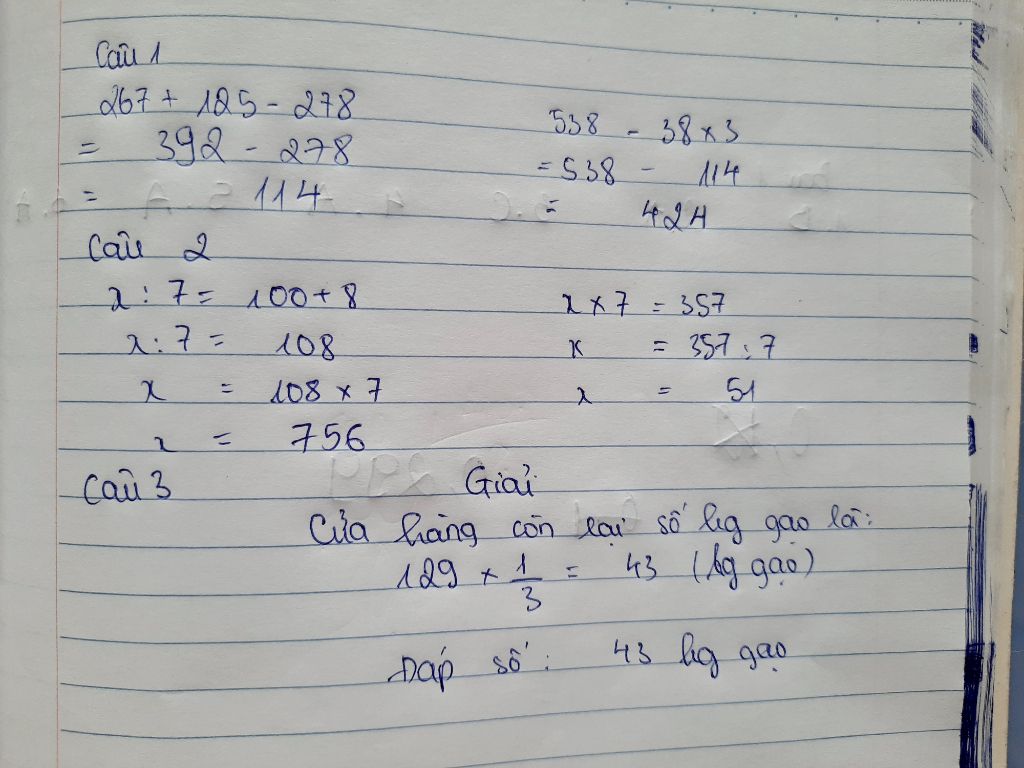 Câu 1
267 + 125 - 278
= 392 - 278
= 114
538 - 38 x 3
= 538 - 114
= 424
Câu 2
x : 7 = 100 + 8
x : 7 = 108
x = 108 x 7
x = 756
x x 7 = 357
x = 357 : 7
x = 51
Câu 3
Giải
Cửa hàng còn lại số kg gạo là:
129 x 1/3 = 43 (kg gạo)
Đáp số: 43 kg gạo